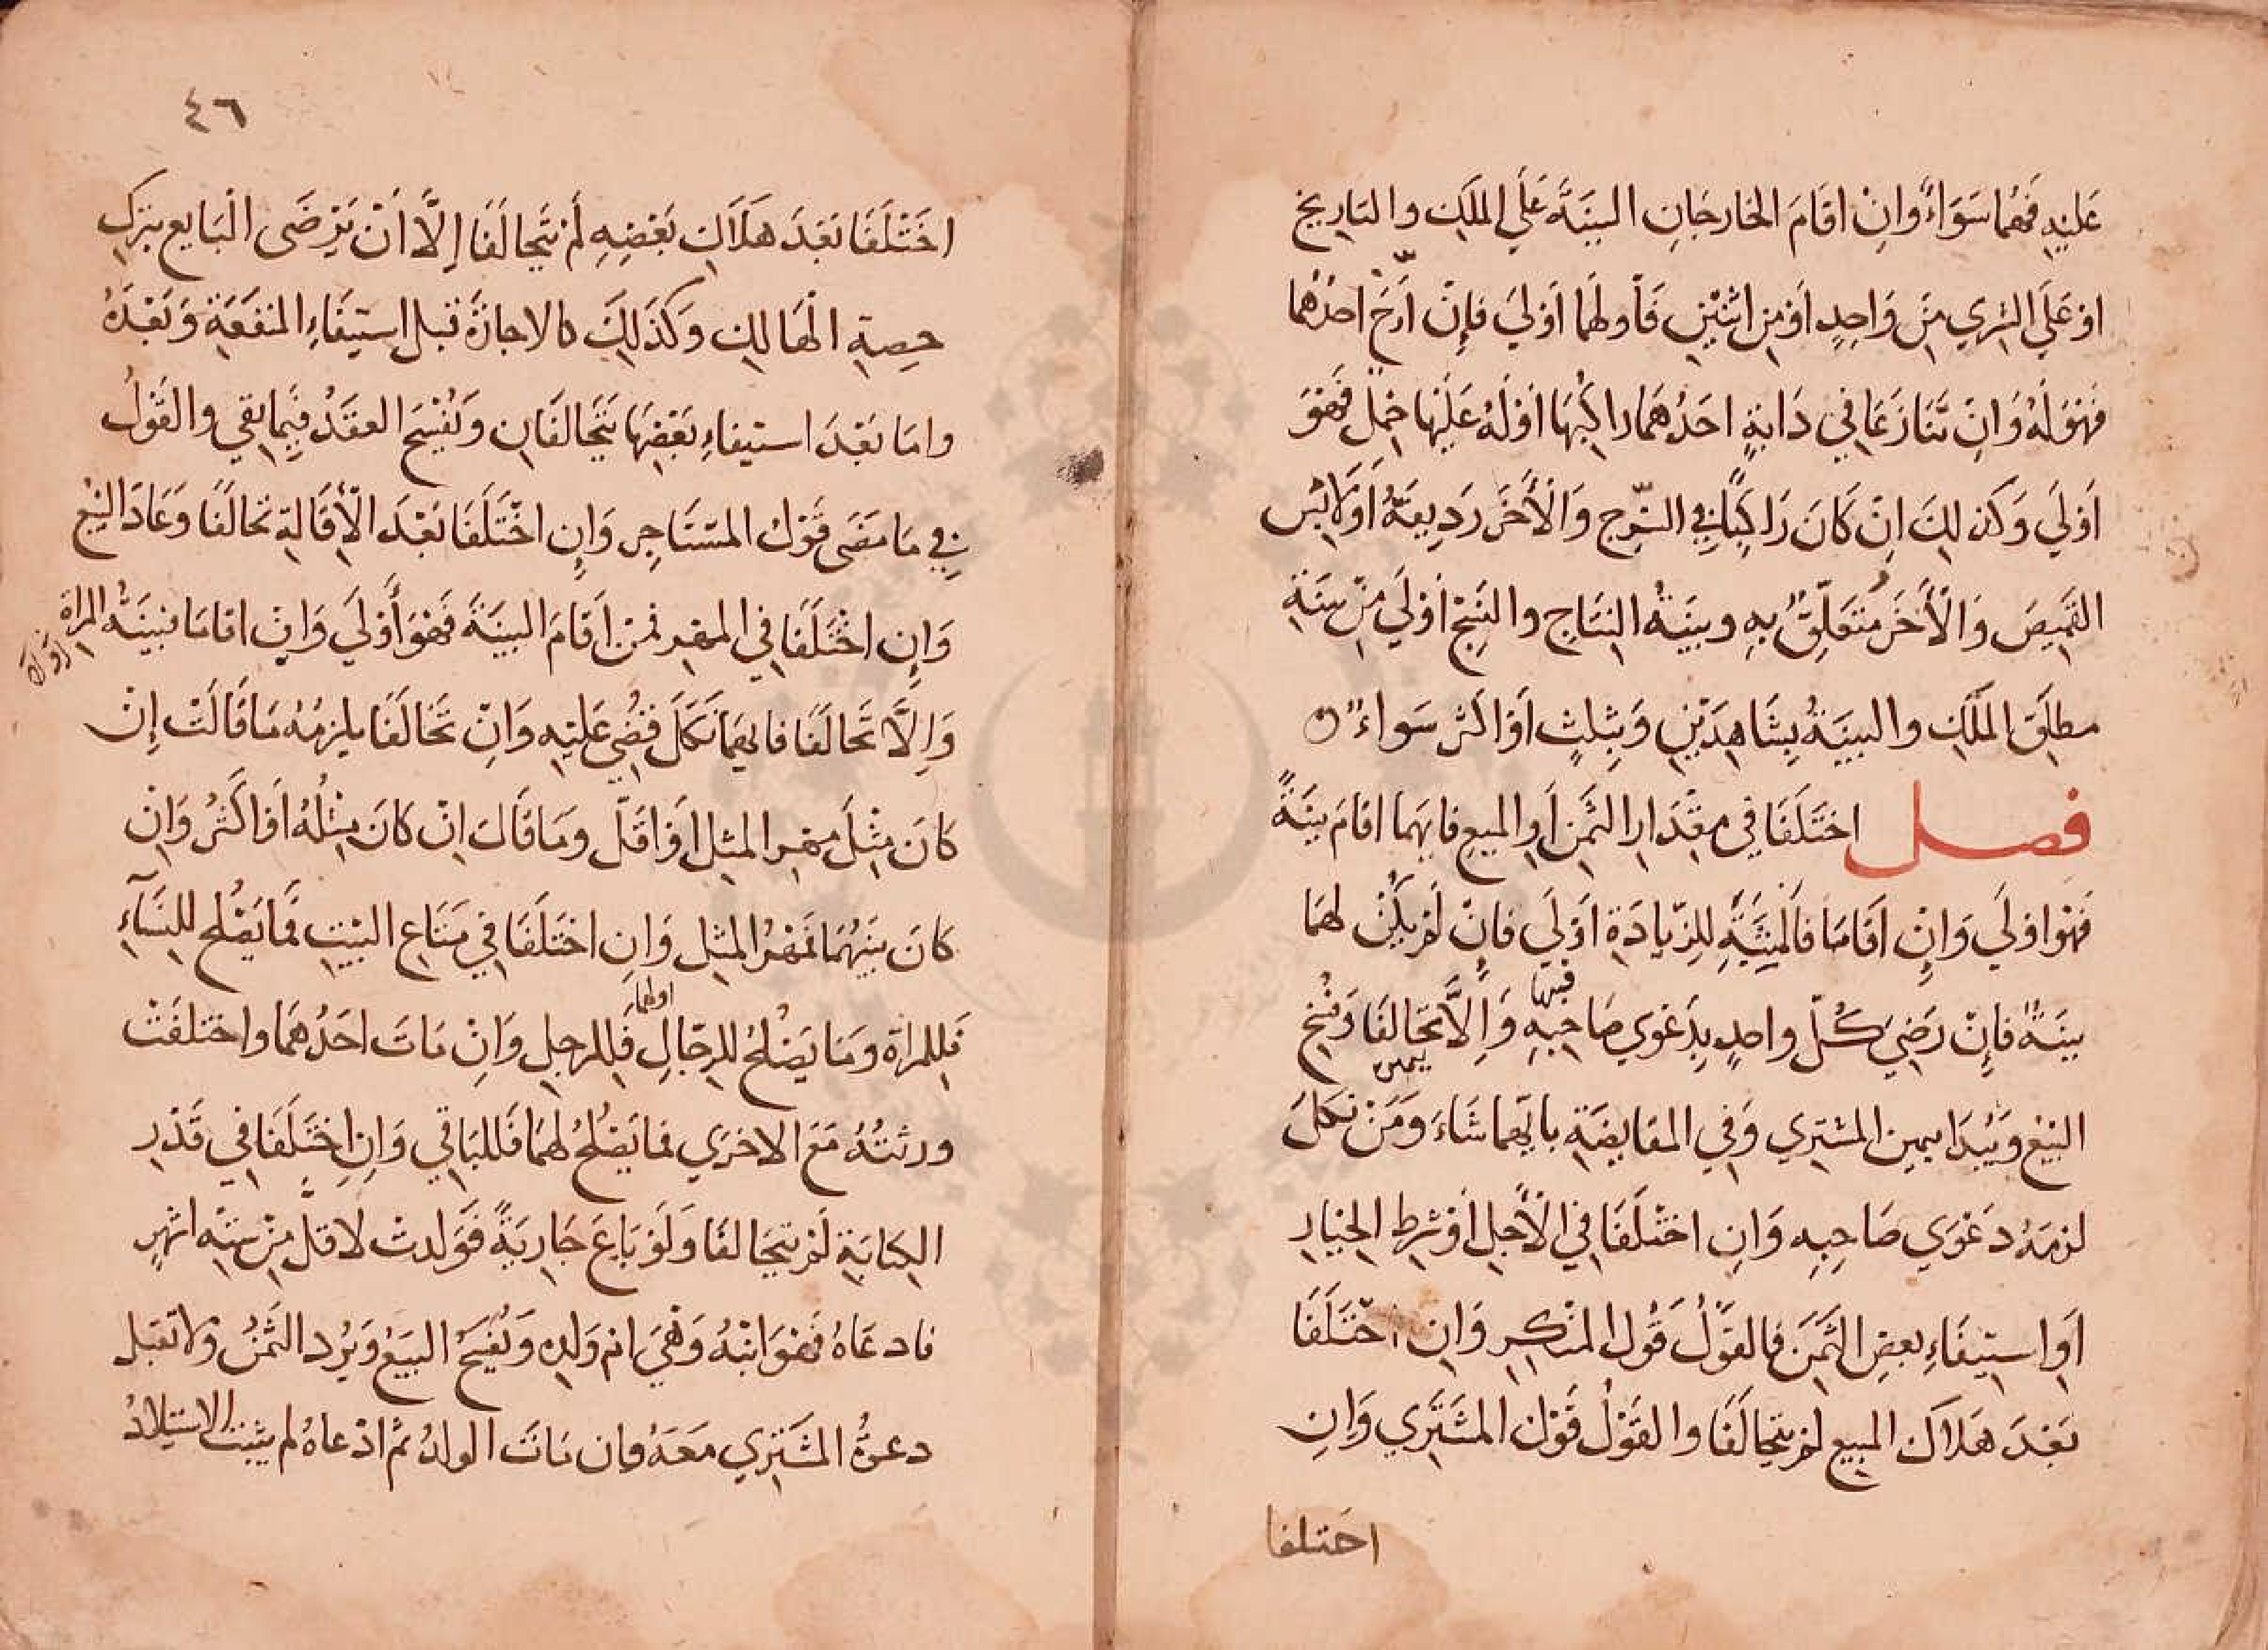 عليه فهما سَوَاءٌ وَانْ اقَامَ الخارجَانِ البينَةَ عَلَى الملكِ والتاريخ
اوْ عَلَى الشرىِ مِنْ وَاحِدٍ اَوْ مِنِ اثنَيْنِ فَأولهُمَا اَوْلَى فَإِنْ اَرّخَ احدُهُما
فهْوَ لَهُ وَانْ تَنَازَعَا فِي دَابةٍ احَدُهمَا راكبُهَا اوْ لَهُ عَلَيْهَا حِمْل فَهْوَ
اَوْلَى وَكذلِكَ انْ كَانَ رَاكِبًا فِي السّرجِ وَالْأَخَر رَدِيفَهُ اَوْ لَابِسَ
القمِيصَ وَالْأَخَر مُتعَلِّقٌ بهِ وبينَةُ النتَاجِ والنسْجِ اَوْلَى مِنْ بينَةِ
مطلَقِ الملْكِ والبينَةُ بِشَاهِدَيْنِ وَبِثلثٍ اَوْ اكثَر سَواء
فصل اختَلَفَا فى مِقْدَارِ الثَّمَنِ اَوِ المبيعِ فايهما اقامَ بينَةً
فَهْوَ اولَى وَاِنْ اَقَامَا فَالْمثبتَةُ لِلزّيادَةِ اَوْلَى فَانْ لَمْ يَكُنْ لهُمَا
بينَةٌ فَاِنْ رَضِيَ كُلّ واحدٍ بِدَعْوى صَاحِبِهِ فيها وَاِلَّا تحَالفَا وَفسْخ
يمين
البَيْعُ وَيُبْدَا بيمينِ المشترِي وَفِي المقَايضَةِ بايّهما شَاءَ وَمَنْ نكَلَ
لزمَهُ دَعْوَى صَاحِبِهِ وَانِ اختَلَفَا فِي الْأَجلِ اَوْ شرطِ الخيَارِ
اَوِ استيفَاءِ بعضِ الثَّمَنِ فالقَوْلُ قَوْلُ المنكِرِ وَانِ اختَلَفَا
بَعْدَ هَلَاكِ المبيعِ لَمْ يتحالَفَا والقَوْلُ قَوْلُ المشتَرِي وَانِ
احتلفا
٤٦
اخَتَلَفَا بَعْدَ هَلَاكِ بَعْضِهِ لَمْ يتَحالَفَا إِلَّا اَنْ يَرْضَى الْبَايع بتركِ
حِصةِ الْهَالكِ وَكَذَلِكَ كالاجارَةِ قَبل استِيفَاءِ المنفَعَةِ وَبَعْدَهُ
وامَا بَعْدَ استيفاءِ بَعْضِهَا يَتحَالفَانِ وَيُفْسَخ العقدُ فِيمَا بَقِي والقَوْلُ
فِي مَا مَضَى قَوْلُ المسْتَاجِرِ وَاِنِ اختَلَفَا بَعْدَ الْاِقَالةِ تحالَفَا وَعَادَ البَيْعُ
وَاِنِ اختَلَفَا فِي المهرِ فمنْ اَقامَ البينَةَ فَهْوَ أَوْلَى وَانْ اقامَا فبينَةُ المراة
وَاِلَّا تَحَالَفَا فايهمَا نَكَلَ قُضِيَ عَلَيْهِ وَانْ تَحَالَفَا يلزمُهُ مَا قَالَتْ اِنْ
كَانَ مِثْلَ مهرِ المثلِ اَوْ اقَلّ ومَا قَالَ انْ كَانَ مِثْلَهُ اَوْ اكثَر وَانْ
كانَ بَيْنَهُمَا فَمَهْرُ المثلِ وَانِ اختَلَفَا فِي مَتَاعِ البَيْتِ فَما يَصْلُح للِنّسَآءِ
فَلِلمراة وَمَا يَصْلحُ لِلرجَالِ اولهما فَلِلرجلِ وَانْ مَاتَ احَدُهمَا واختلفَتْ
ورثتُهُ مَعَ الاخرَى فما يَصْلحُ لهُمَا فَلِلبَاقِي وَانِ اختَلَفَا فِي قَدْرِ
الكتابَةِ لَمْ يتحَالفَا وَلَوْ بَاعَ جَارِيَةً فَوَلدتْ لاقلّ مِنْ ستةِ اشهرٍ
فادعَاهُ فَهْوَ ابْنُهُ وَهْيَ ام وَلدِهِ وَيُفْسَخُ البَيْعُ وَيُرْد الثَّمَنُ وَلا تقبَل
دعوةُ المشتَرِي مَعَهُ وان مَاتَ الولدُ ثمّ ادْعاهُ لم يثبت الاستيلادُ